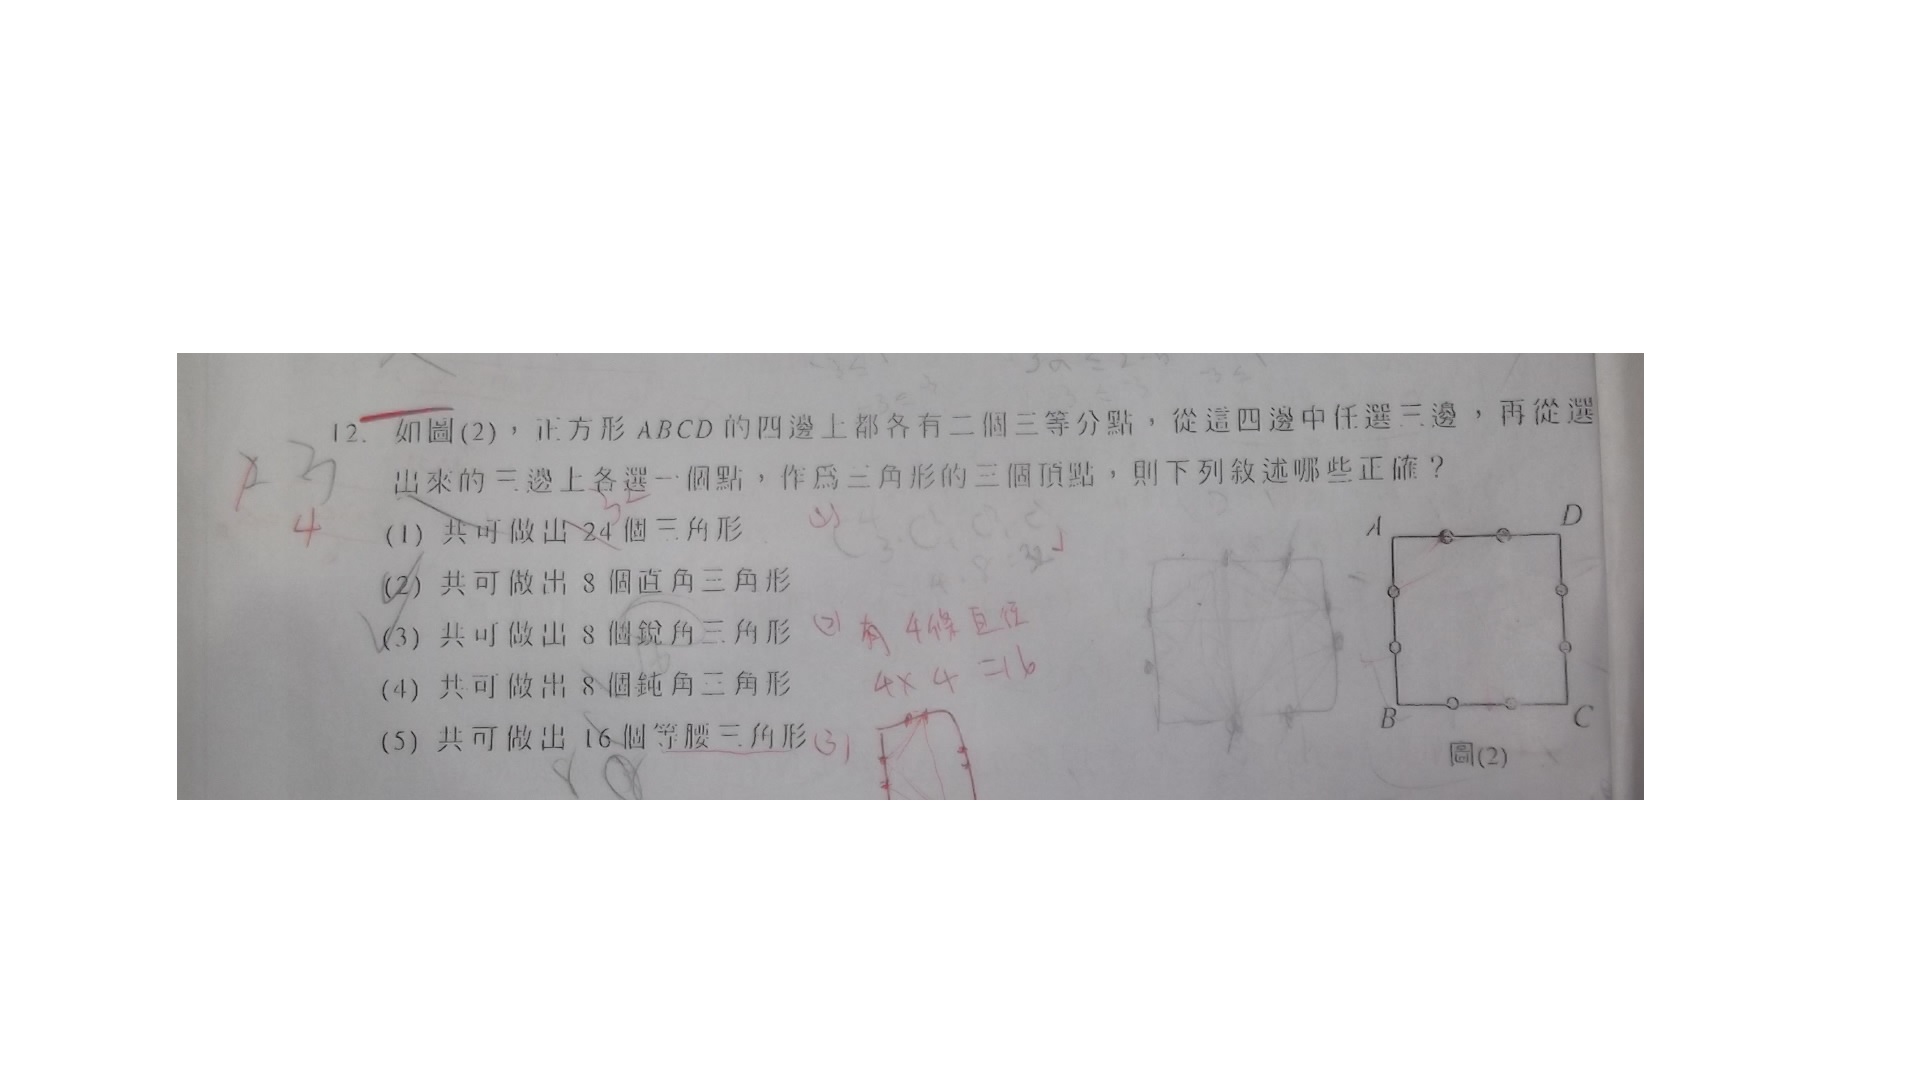 12. 如圖(2)，正方形 ABCD 的四邊上都各有二個三等分點，從這四邊中任選三邊，再從選
出來的三邊上各選一個點，作為三角形的三個頂點，則下列敘述哪些正確？
(1) 共可做出 24 個三角形
(2) 共可做出 8 個直角三角形
(3) 共可做出 8 個銳角三角形
(4) 共可做出 8 個鈍角三角形
(5) 共可做出 16 個等腰三角形
4
(2) 有 4條直徑
4×4 =16
(3)
A D
B C
圖(2)